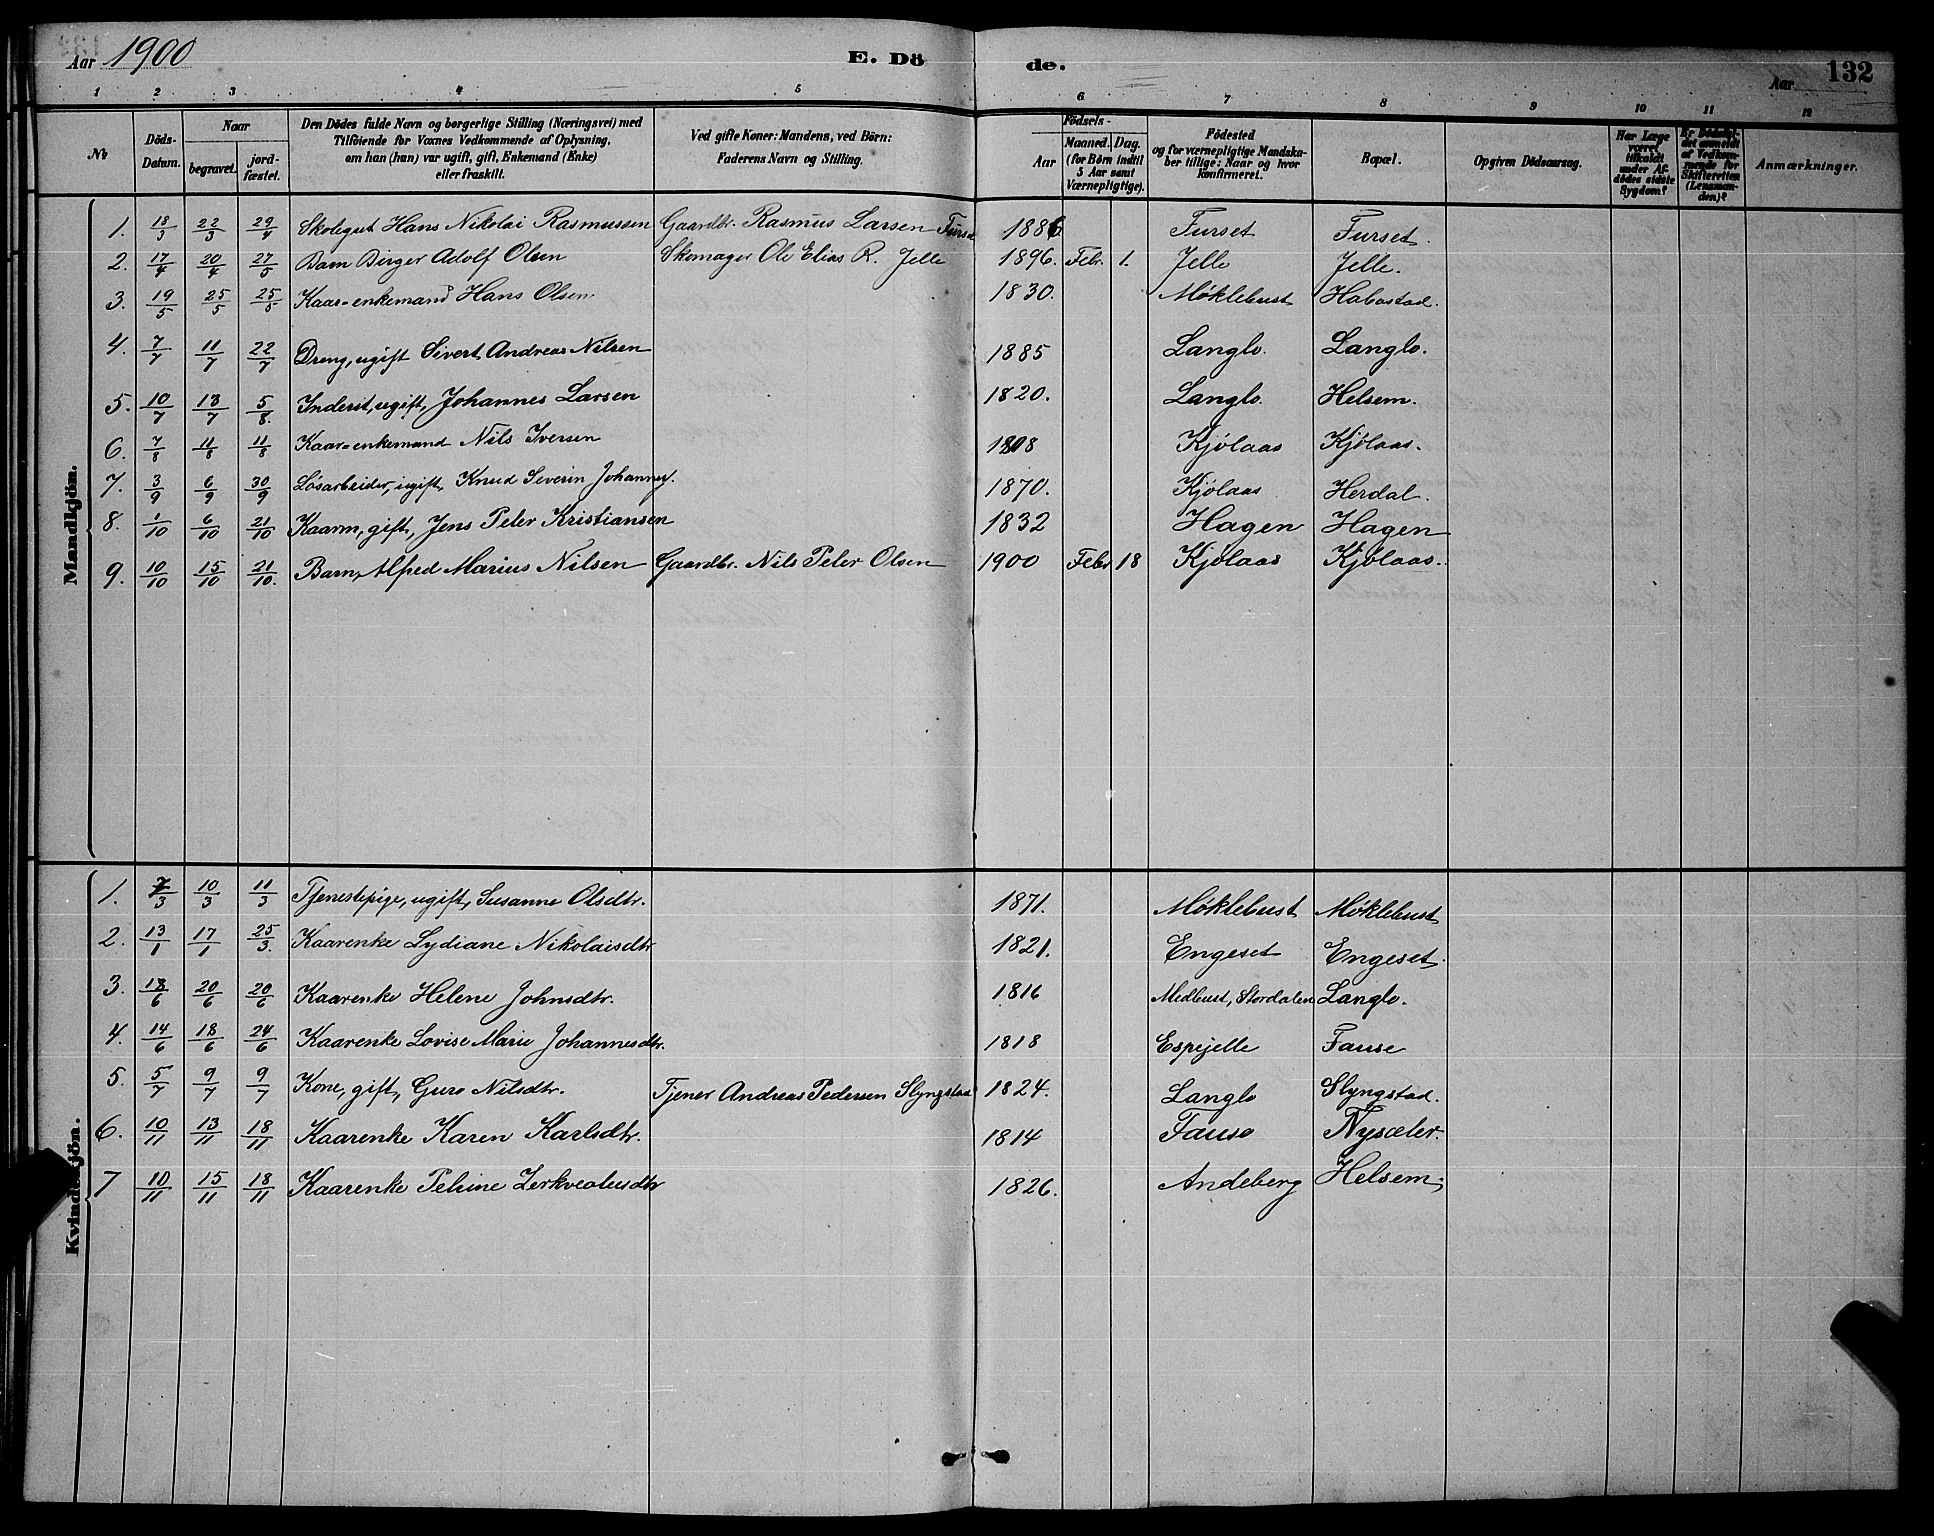 Aar 1900 E. Dö de. Aar 132
1 2 3 4 5 6 7 8 9 10 11 12
№ Döds-Datum. Naar begravet. jord-fæstet. Den Dödes fulde Navn og borgerlige Stilling (Næringsvei) med Tilföiende for Voxnes Vedkommende af Oplysning, om han (hun) var ugift, gift, Enkemand (Enke) eller fraskilt. Ved gifte Koner: Mandens, ved Börn: Faderens Navn og Stilling. Födsels- Aar Maaned. Dag. (for Börn indtil 5 Aar samt Værnepligtige). Födested og for værnepligtige Mandskaber tillige: Naar og hvor konfirmeret. Bopæl. Opgiven Dödsaarsag. Har Læge været tilkaldt under Afdödes sidste Sygdom? Er Dödsfaldet anmeldt af Vedkommende for Skifteretten (Lensmanden)? Anmærkninger.
Mandkjön.
1. 18/3 22/3 29/4 Skolegut Hans Nikolai Rasmussen Gaardbr. Rasmus Larsen Furset 1886 Furset Furset.
2. 17/4 20/4 27/5 Barn Birger Adolf Olsen Skomager Ole Elias R. Jelle 1896. Febr. 1. Jelle Jelle.
3. 19/5 25/5 25/5 Kaar-enkemand Hans Olsen 1830. Møklebust Habostad.
4. 7/7 11/7 22/7 Dreng, ugift Sivert Andreas Nilsen 1885 Langlo. Langlo.
5. 10/7 13/7 5/8. Inderst, ugift, Johannes Larsen 1820. Langlo. Helsem.
6. 7/8 11/8 11/8 Kaar-enkemand Nils Iversen 1808 Kjölaas Kjölaas.
7. 3/9 6/9 30/9 Lösarbeider, ugift, Knud Severin Johannes. 1870. Kjölaas Herdal.
8. 1/10 6/10 21/10 Kaarm, gift, Jens Peter Kristiansen 1832 Hagen Hagen
9. 10/10 15/10 21/10. Barn, Alfred Marius Nilsen Gaardbr. Nils Peter Olsen 1900 Febr 18 Kjölaas Kjölaas.
Kvindekjön.
1. 7/3 10/3 11/3 Tjenestepige, ugift, Susanne Olsdtr. 1871. Møklebust Møklebust
2. 13/1 17/1 25/3. Kaarenke Lydiane Nikolaisdtr 1821. Engeset Engeset.
3. 18/6 20/6 20/6 Kaarenke Helene Johnsdtr. 1816 Medbust, Stordalen Langlo.
4. 14/6 18/6 24/6 Kaarenke Lovise Marie Johannesdtr. 1818 Espejelle Fause
5. 5/7 9/7 9/7 Kone, gift, Guro Nilsdtr. Tjener Andreas Pedersen Slyngstad 1824. Langlo Slyngstad.
6. 10/11 13/11 18/11 Kaarenke Karen Karlsdtr. 1814 Fause Nysæter.
7 10/11 15/11 18/11 Kaarenke Petrine 1826. Andeberg Helsem.